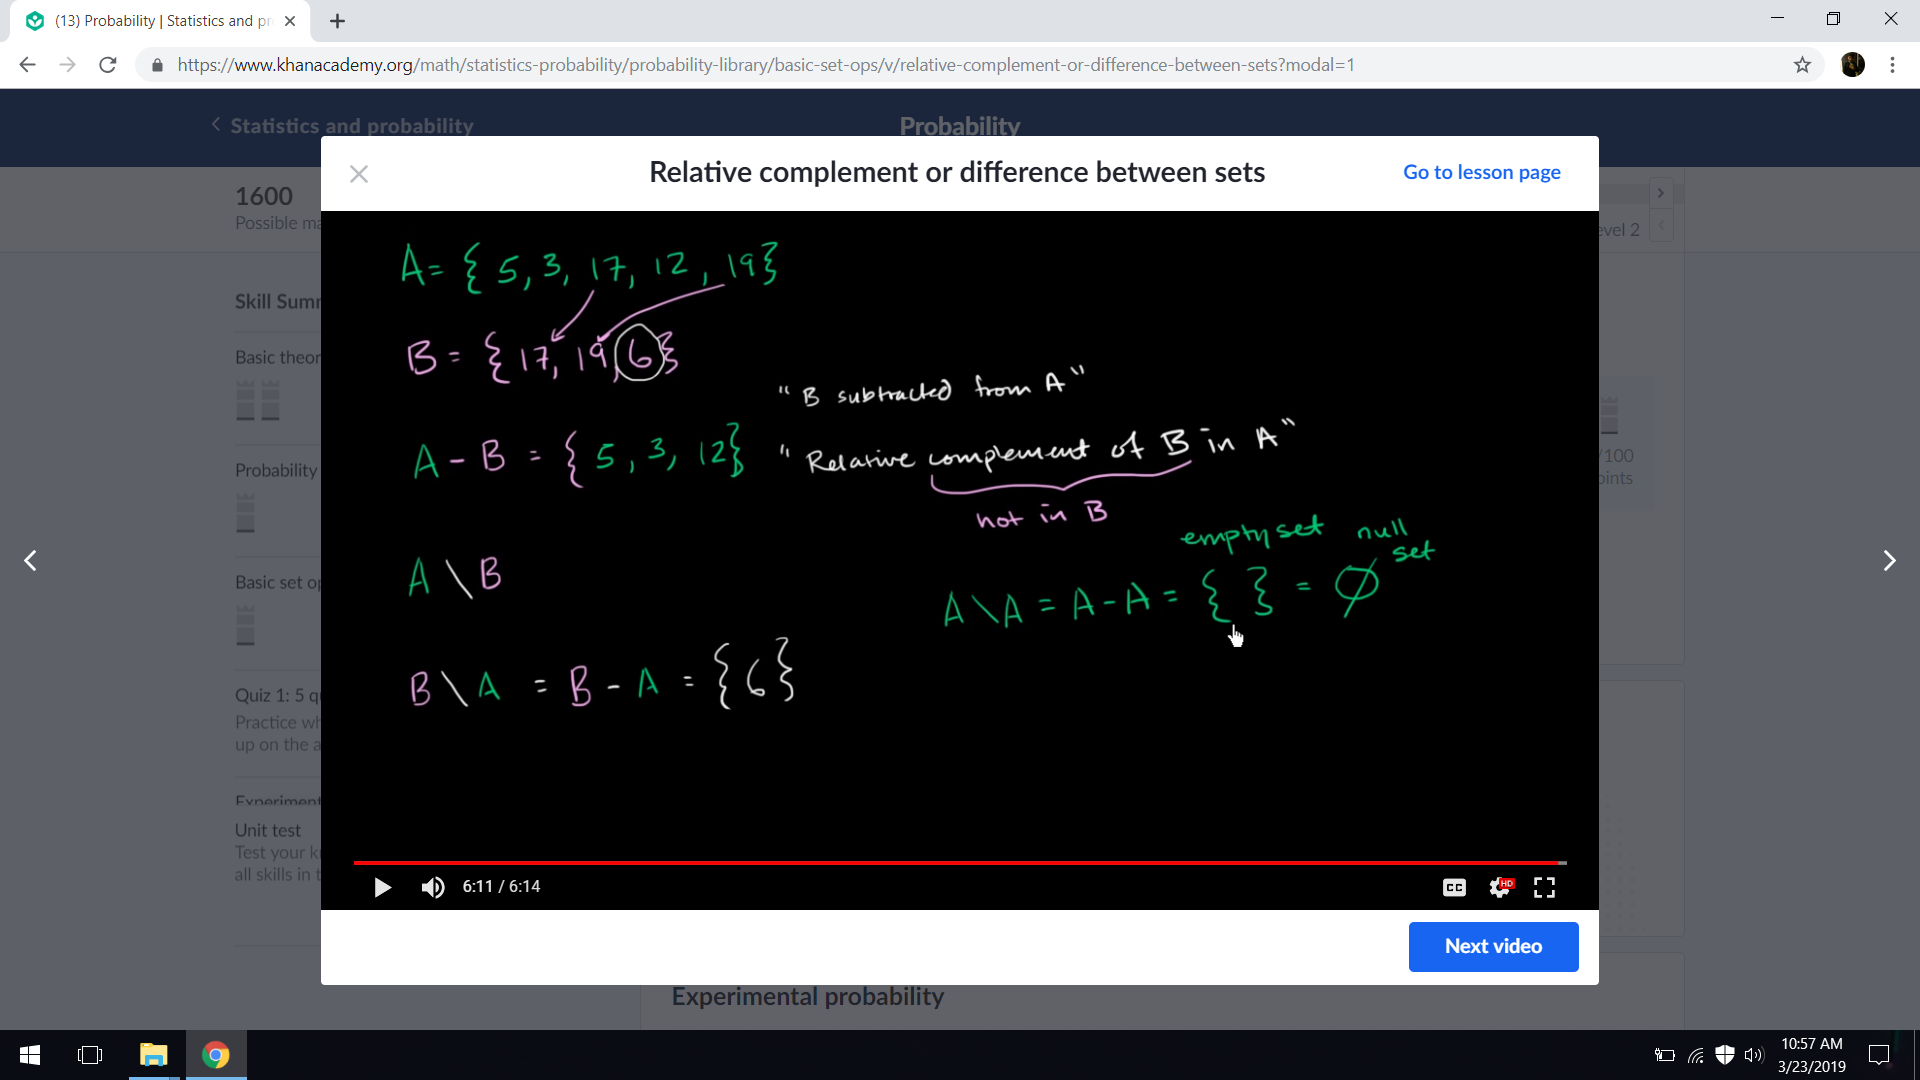 (13) Probability | Statistics and pr
https://www.khanacademy.org/math/statistics-probability/probability-library/basic-set-ops/v/relative-complement-or-difference-between-sets?modal=1
Statistics and probability
Probability
1600
Possible ma
evel 2
Skill Summ
Basic theor
Probability
Basic set op
Quiz 1: 5 q
Practice wh
up on the a
Experiment
Unit test
Test your k
all skills in t
/100
oints
Relative complement or difference between sets
Go to lesson page
A = { 5, 3, 17, 12, 19}
B = { 17, 19, 6}
"B subtracted from A"
A - B = { 5, 3, 12} "Relative complement of B in A"
not in B
empty set null set
A \ B
A \ A = A - A = { } = ∅
B \ A = B - A = {6}
6:11 / 6:14
CC
HD
Next video
Experimental probability
10:57 AM
3/23/2019